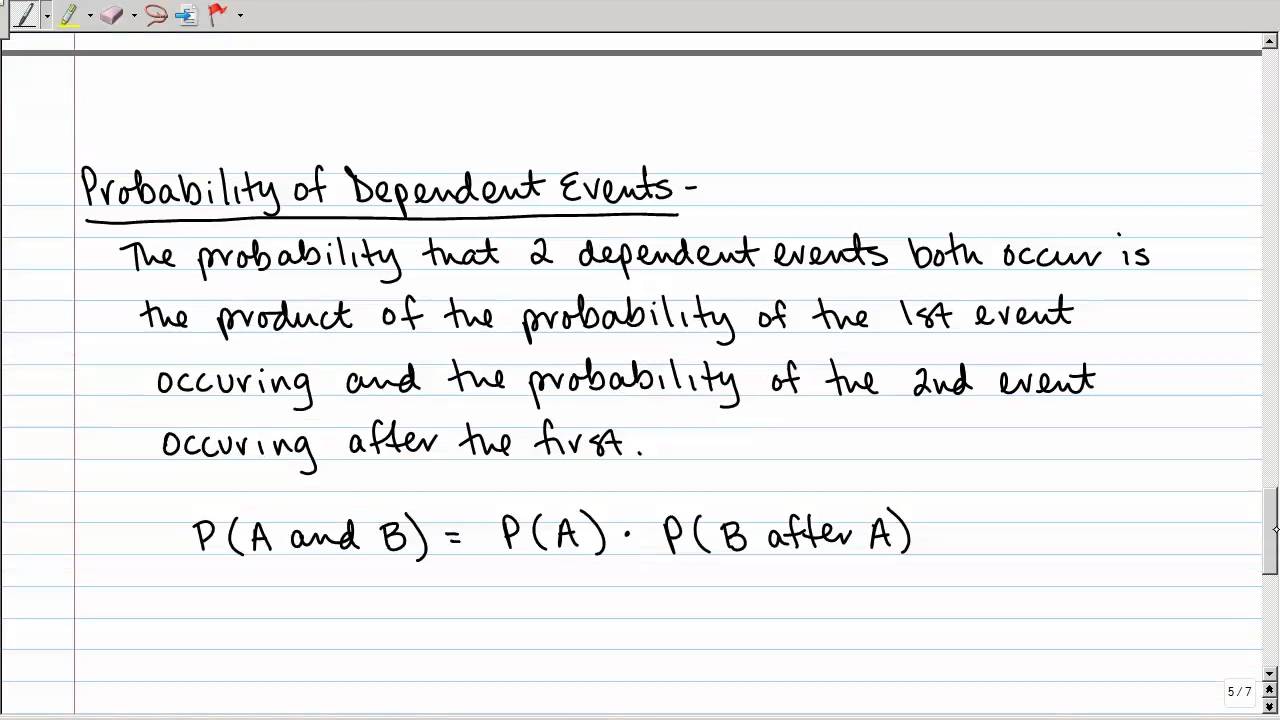 Probability of Dependent Events -
The probability that 2 dependent events both occur is
the product of the probability of the 1st event
occuring and the probability of the 2nd event
occuring after the first.
P(A and B) = P(A) · P(B after A)
5/7